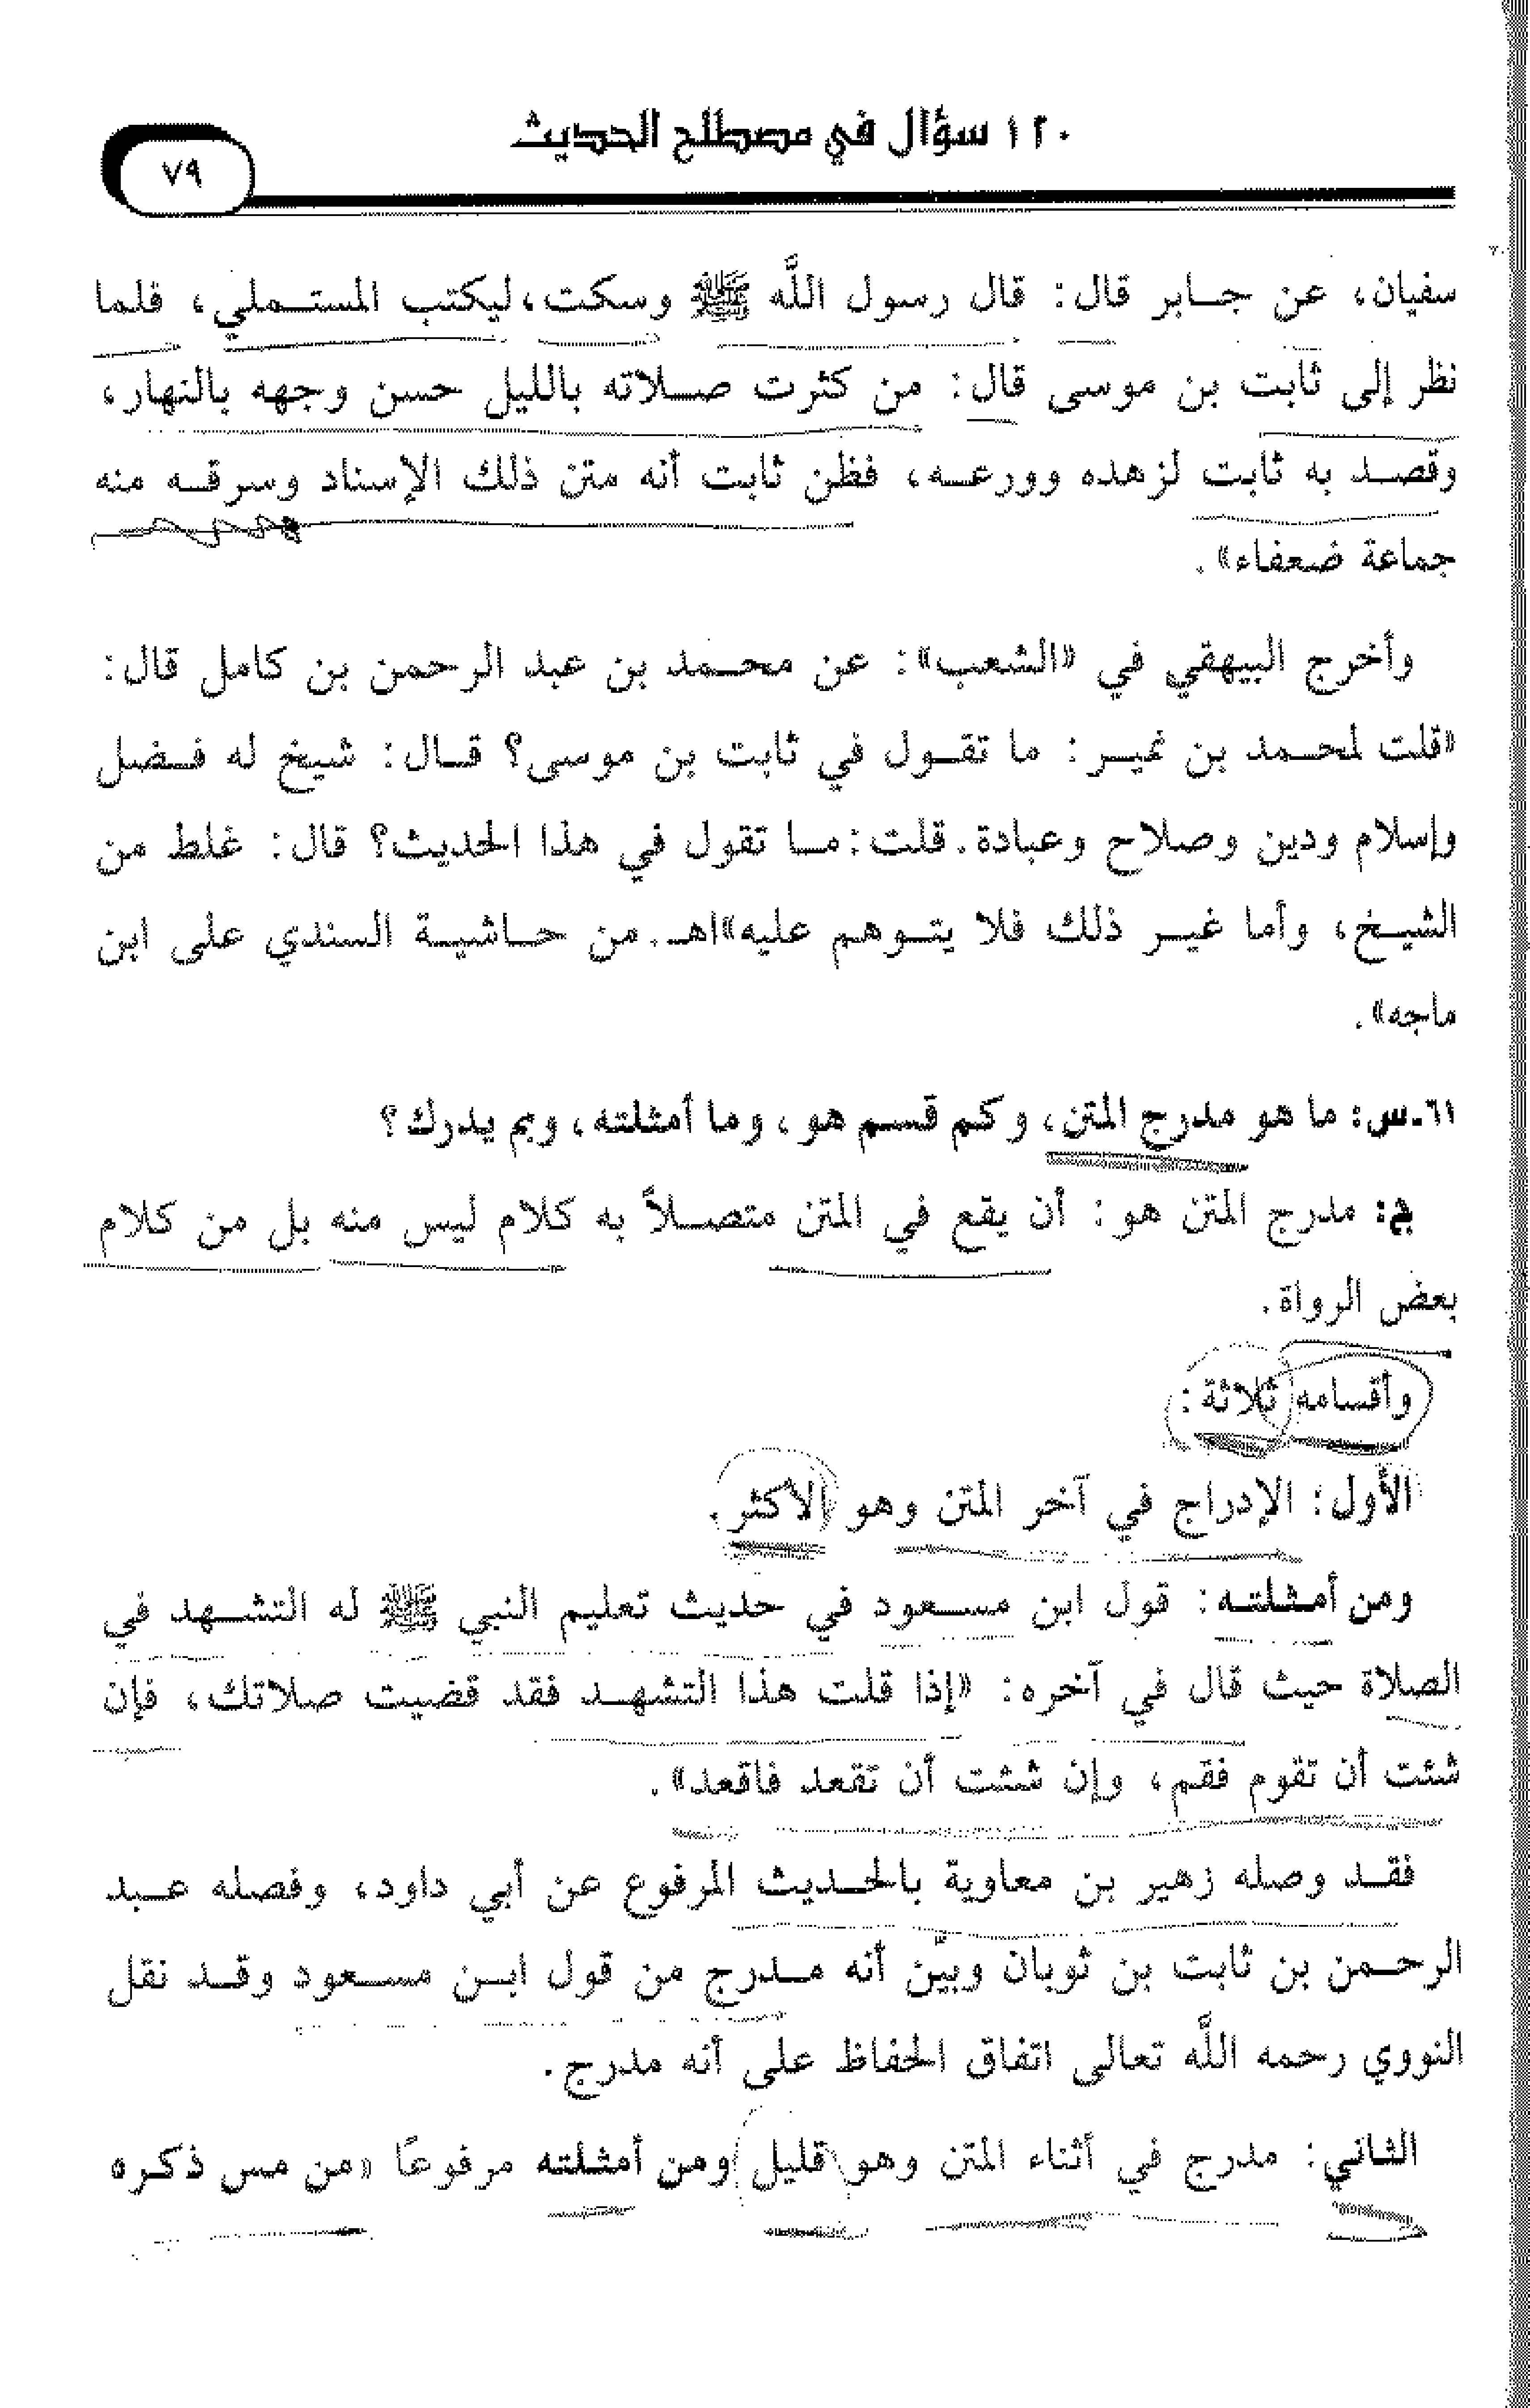 ١٢٠ سؤال في مصطلح الحديث
٧٩
سفيان، عن جابر قال: قال رسول اللَّه ﷺ وسكت، ليكتب المستملي، فلما
نظر إلى ثابت بن موسى قال: من كثرت صلاته بالليل حسن وجهه بالنهار،
وقصد به ثابت لزهده وورعه، فظن ثابت أنه متن ذلك الإسناد وسرقه منه
جماعة ضعفاء».
وأخرج البيهقي في «الشعب»: عن محمد بن عبد الرحمن بن كامل قال:
«قلت لمحمد بن نمير: ما تقول في ثابت بن موسى؟ قال: شيخ له فضل
وإسلام ودين وصلاح وعبادة. قلت: ما تقول في هذا الحديث؟ قال: غلط من
الشيخ، وأما غير ذلك فلا يتوهم عليه»اهـ. من حاشية السندي على ابن
ماجه».
٦١ـ س: ما هو مدرج المتن، وكم قسم هو، وما أمثلته، وبم يدرك؟
ج: مدرج المتن هو: أن يقع في المتن متصلاً به كلام ليس منه بل من كلام
بعض الرواة.
وأقسامه ثلاثة:
الأول: الإدراج في آخر المتن وهو الأكثر.
ومن أمثلته: قول ابن مسعود في حديث تعليم النبي ﷺ له التشهد في
الصلاة حيث قال في آخره: «إذا قلت هذا التشهد فقد قضيت صلاتك، فإن
شئت أن تقوم فقم، وإن شئت أن تقعد فاقعد».
فقد وصله زهير بن معاوية بالحديث المرفوع عن أبي داود، وفصله عبد
الرحمن بن ثابت بن ثوبان وبيّن أنه مدرج من قول ابن مسعود وقد نقل
النووي رحمه اللَّه تعالى اتفاق الحفاظ على أنه مدرج.
الثاني: مدرج في أثناء المتن وهو قليل ومن أمثلته مرفوعًا «من مس ذكره